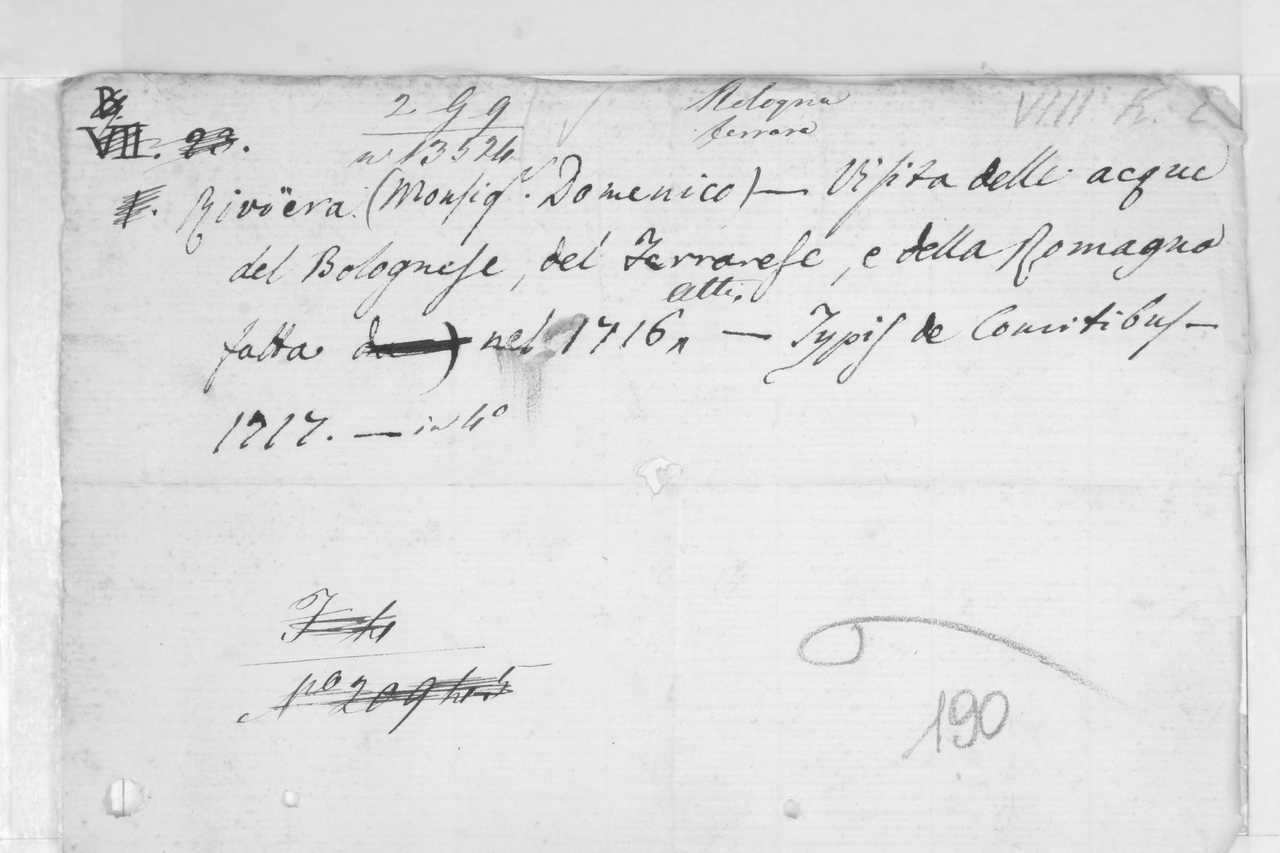 2 G g
n° 13524
Bologna
ferrara
VIII. K.
VIII. 23.
Rivïera (Monsigr. Domenico) — Visita delle acque
del Bolognese, del Ferrarese, e della Romagna
etti.
fatta da) nel 1716 — Typis de Comitibus —
1717. — in 4°
F h
N° 209
190